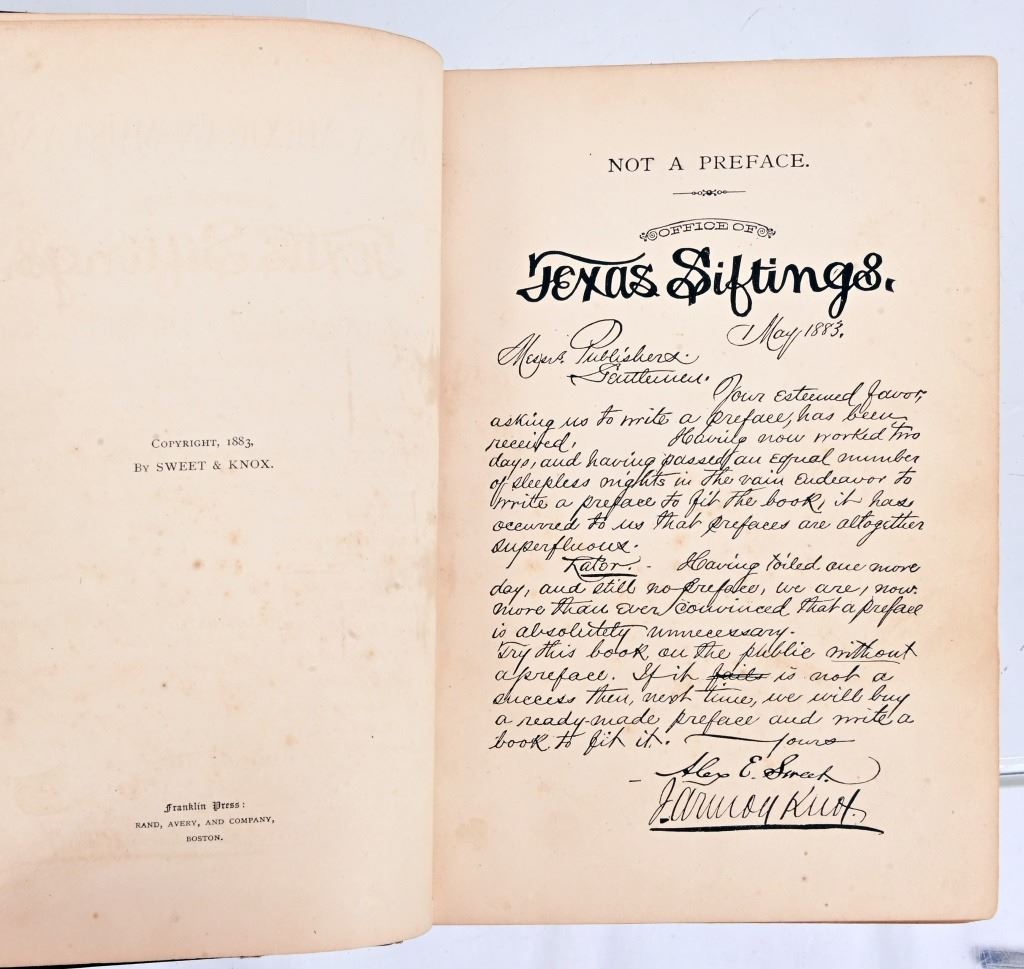 COPYRIGHT, 1883,
BY SWEET & KNOX.
Franklin Press:
RAND, AVERY, AND COMPANY,
BOSTON.
NOT A PREFACE.
OFFICE OF
Texas Siftings.
May 1883.
Messrs. Publishers.
Gentlemen.
Your esteemed favor,
asking us to write a preface, has been
received. Having now worked two
days, and having passed an equal number
of sleepless nights in the vain endeavor to
write a preface to fit the book, it has
occurred to us that prefaces are altogether
superfluous.
Later. - Having toiled one more
day, and still no preface, we are, now
more than ever convinced that a preface
is absolutely unnecessary.
Try this book on the public without
a preface. If it fails is not a
success then, next time, we will buy
a ready-made preface and write a
book to fit it. Yours
Alex E. Sweet.
J. Armoy Knox.